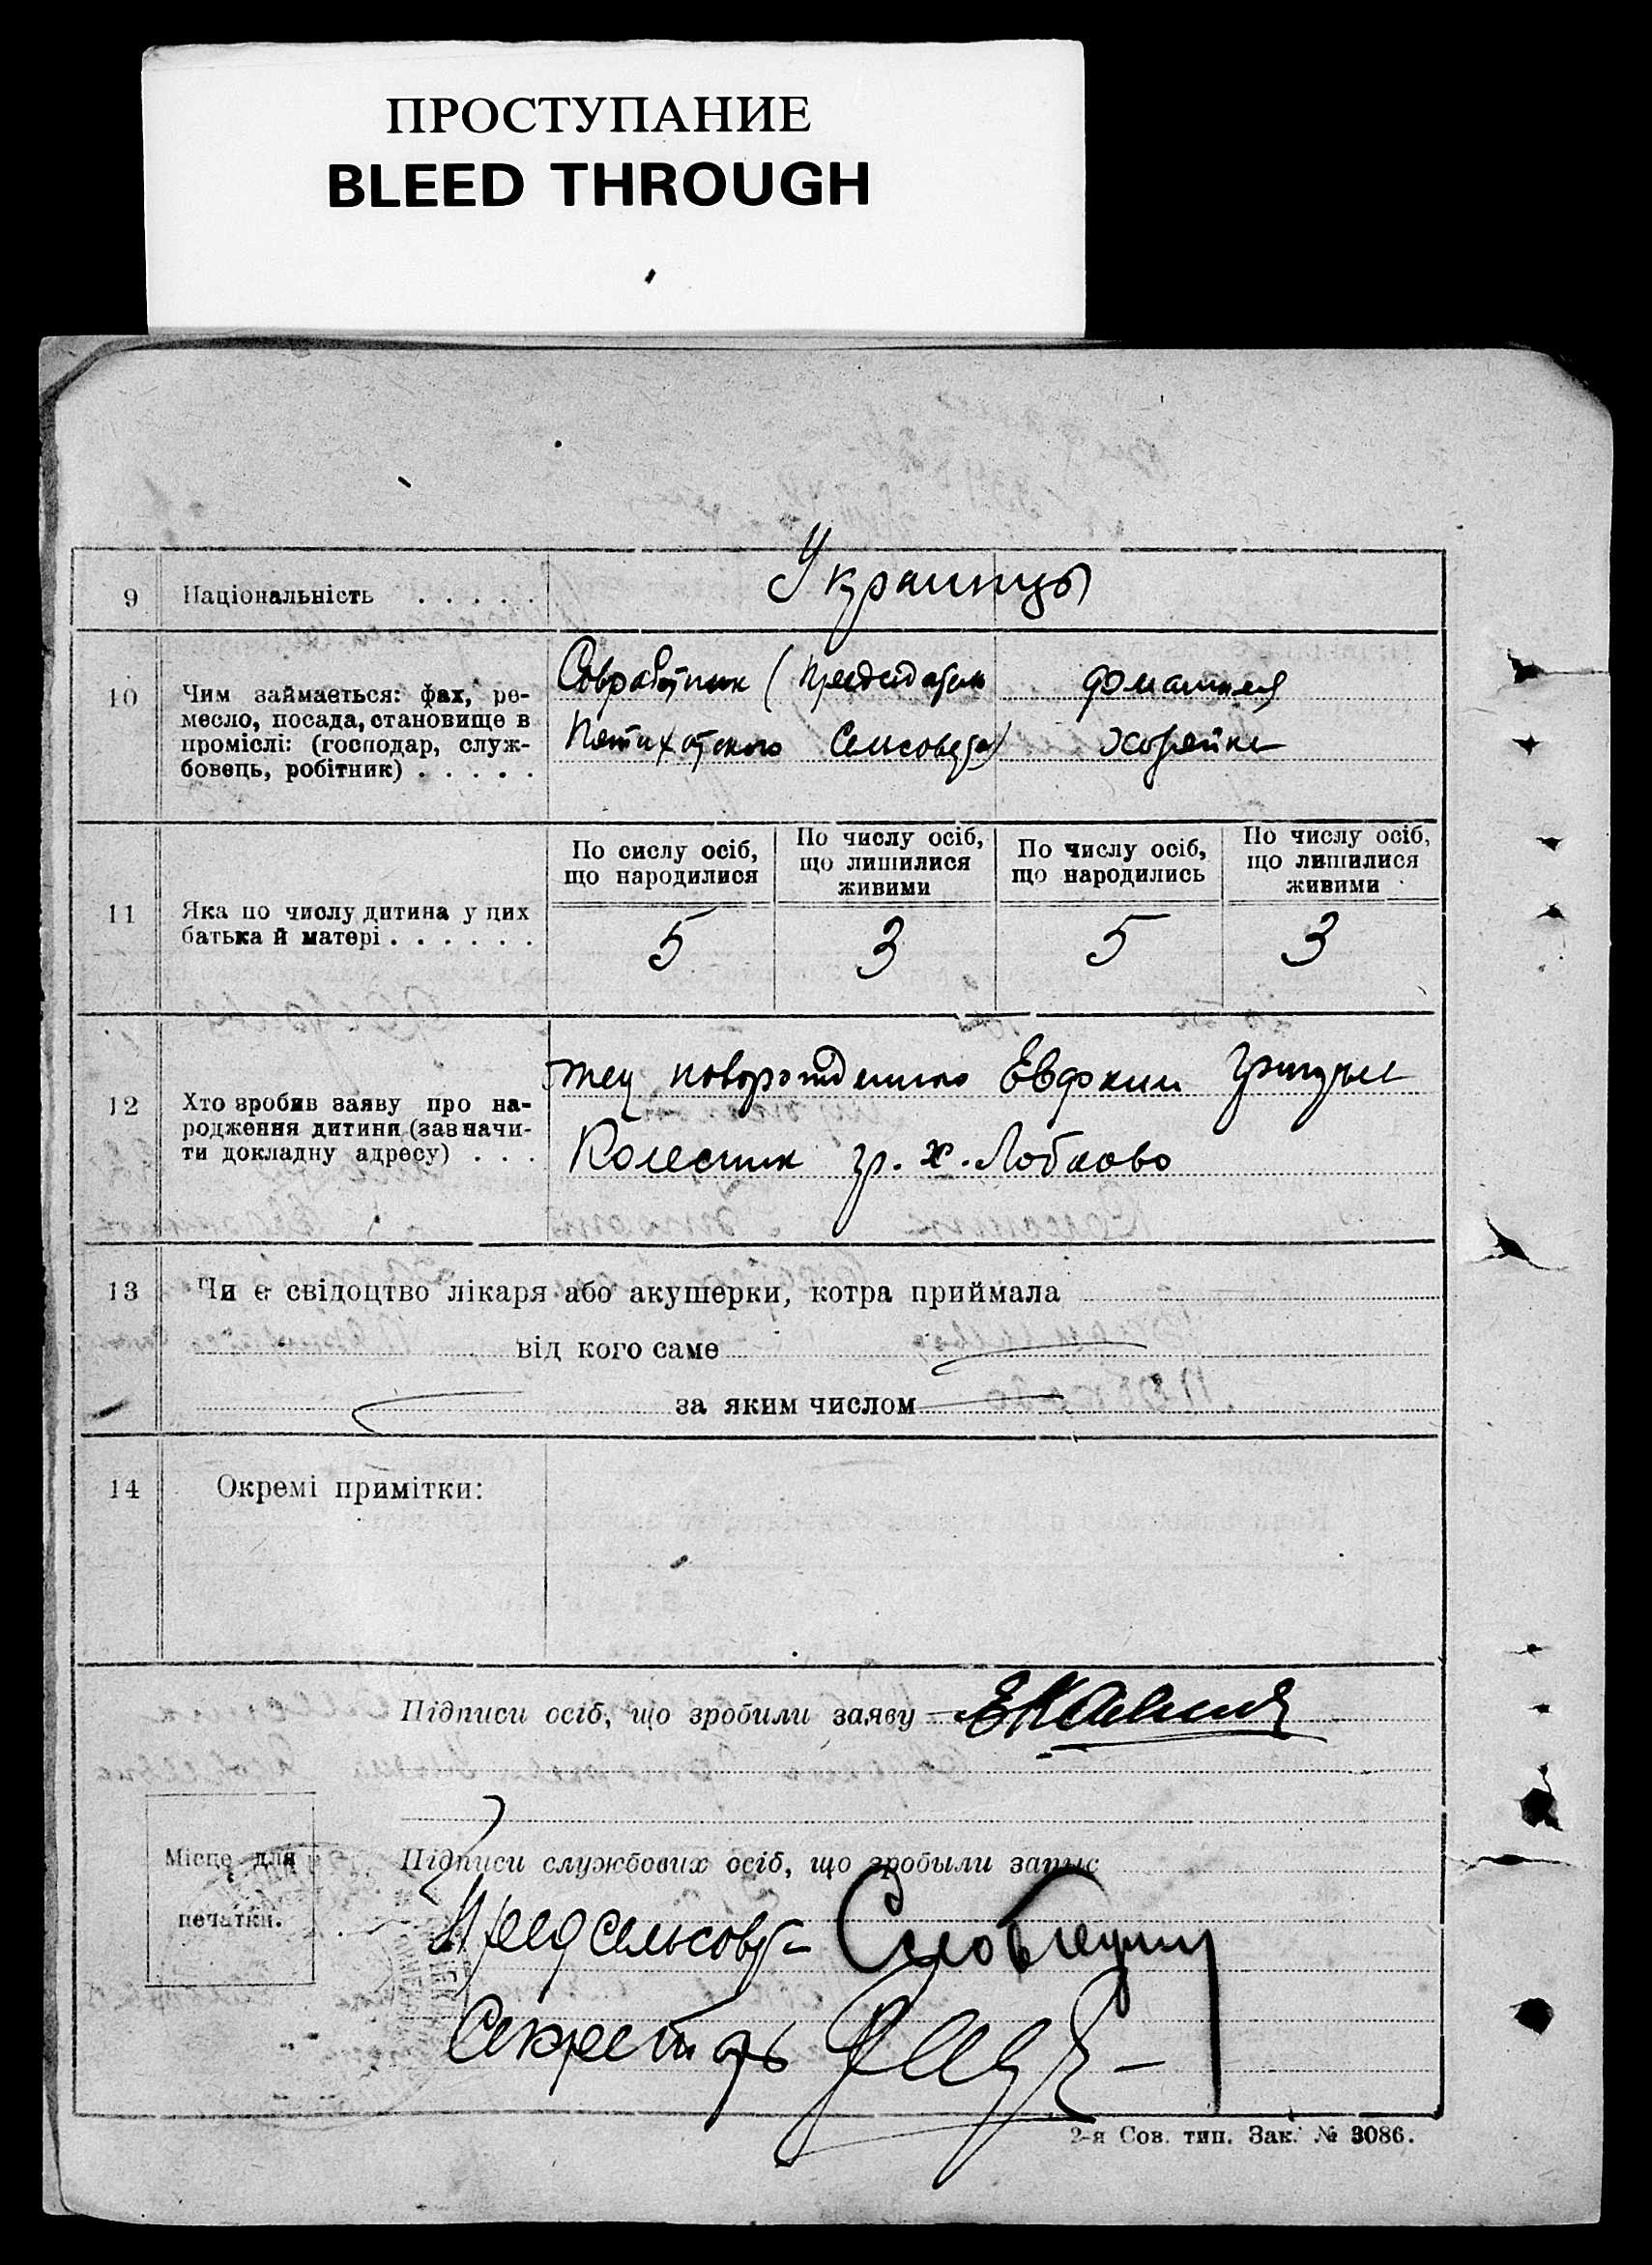 ПРОСТУПАНИЕ
BLEED THROUGH
9 Національність . . . . . Украинцы
10 Чим займається: фах, ре-
месло, посада, становище в
проміслі: (господар, служ-
бовець, робітник) . . . . .
Совработник (Председатель
Пятихатского Сельсовета)
домашняя
хозяйка
11 Яка по числу дитина у цих
батька й матері . . . . . .
По сислу осіб,
що народилися
По числу осіб,
що лишилися
живими
По числу осіб,
що народились
По числу осіб,
що лишилися
живими
5 3 5 3
12 Хто зробив заяву про на-
родження дитини (зазначи-
ти докладну адресу) . . .
Отец новорожденного Евдоким
Колесник гр. х. Лобково
13 Чи є свідоцтво лікаря або акушерки, котра приймала
від кого саме
за яким числом
14 Окремі примітки:
Підписи осіб, що зробили заяву
Місце для
печатки.
Підписи службових осіб, що зробыли запис
Предсельсовета
Секретарь
2-я Сов. тип. Зак. № 3086.